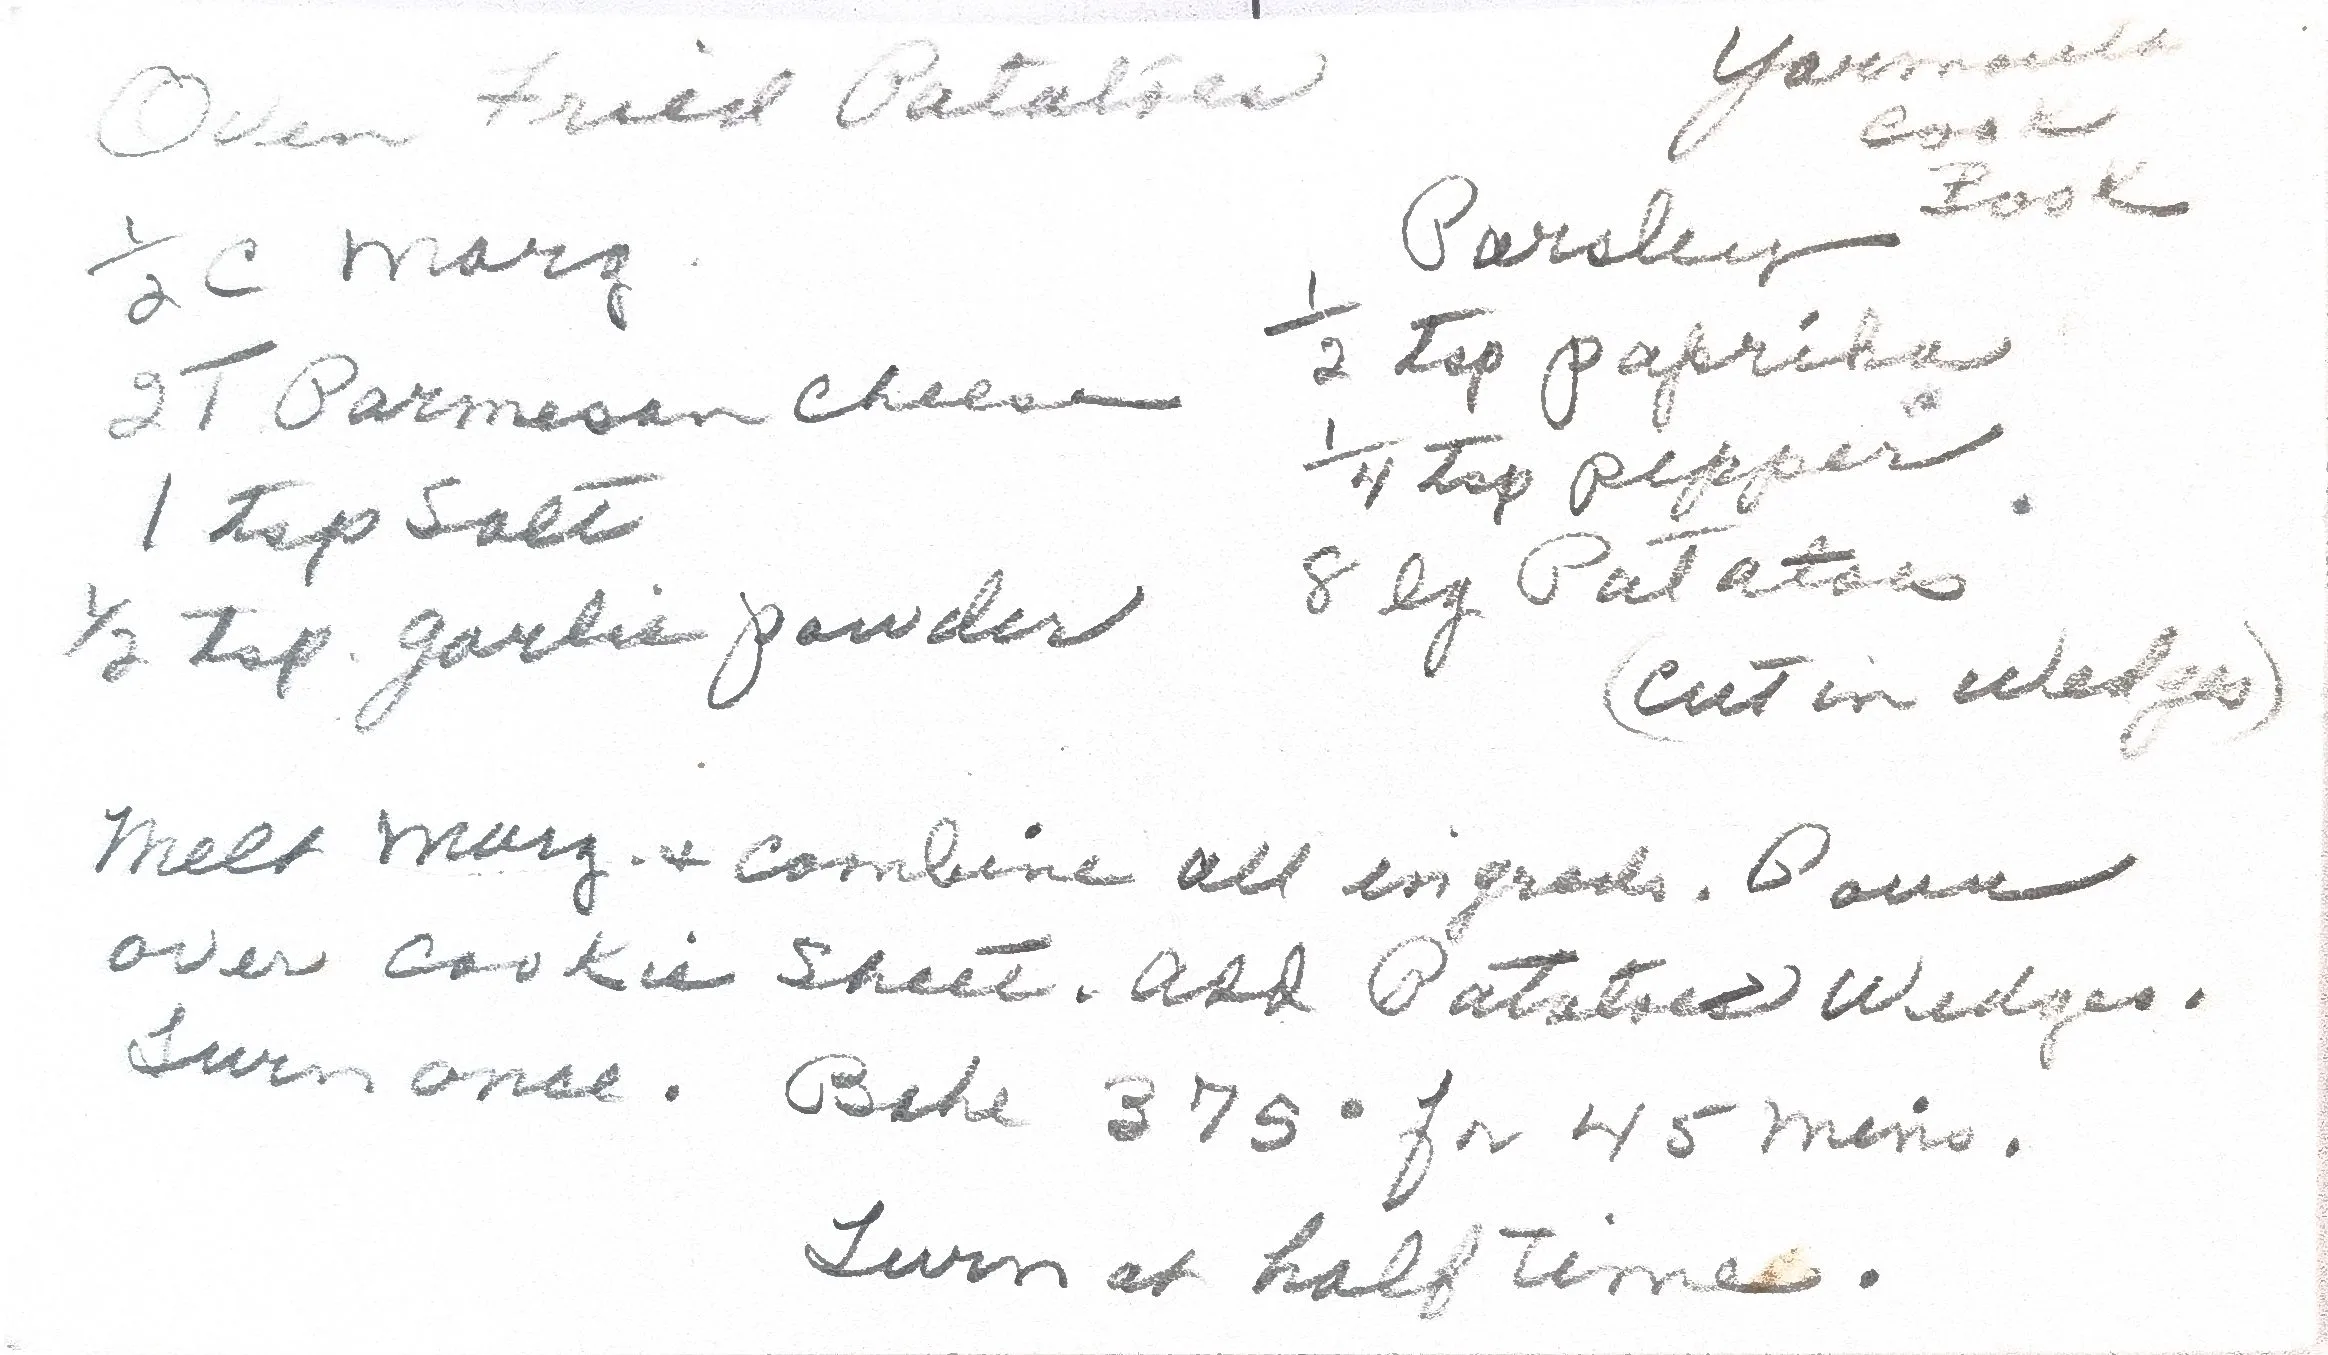 Oven Fried Potatoes
Yarmouth
Cook
Book
1/2 C Marg.
2T Parmesan Cheese
1 tsp Salt
1/2 tsp. garlic powder
Parsley
1/2 tsp paprika
1/4 tsp pepper
8 lg Potatoes
(Cut in Wedges)
Melt Marg. + Combine all ingreds. Pour
over Cookie Sheet. Add Potatoes Wedges.
Turn once. Bake 375° for 45 mins.
Turn at half time.